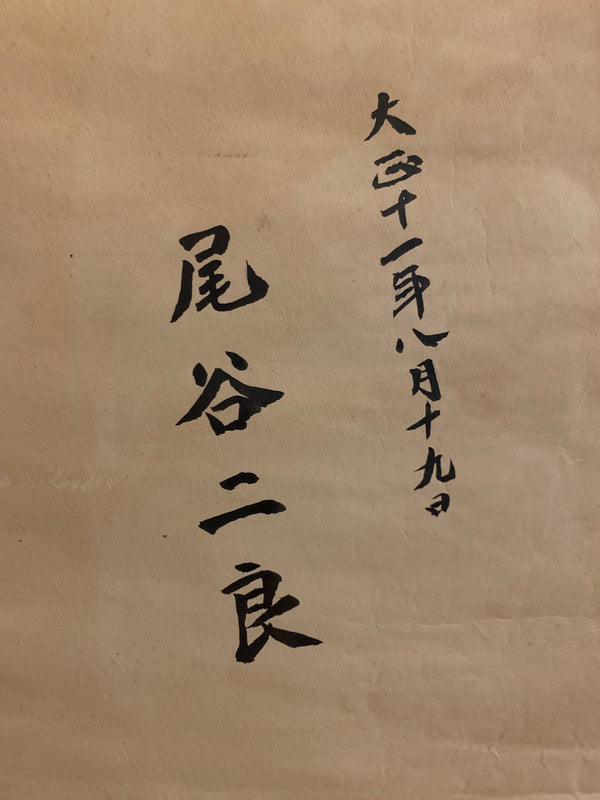 大正十一年八月十九日
尾谷二良